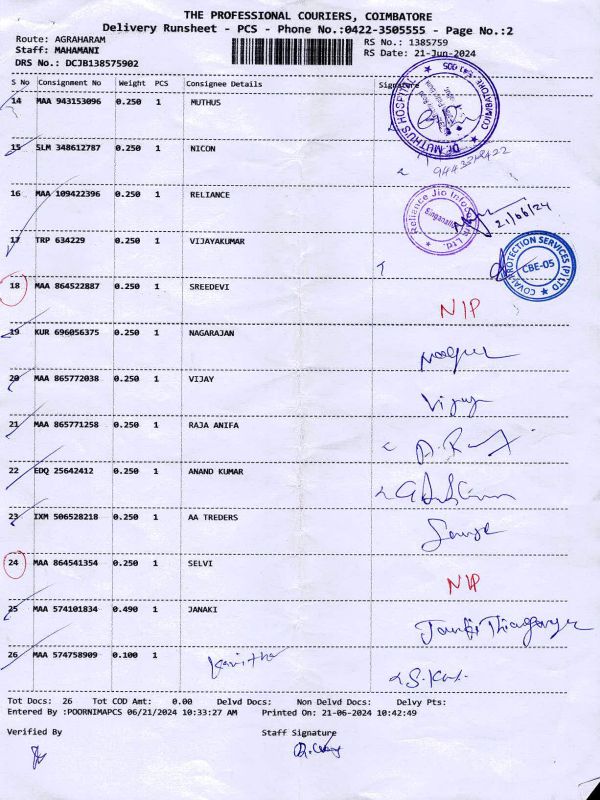 THE PROFESSIONAL COURIERS, COIMBATORE
Delivery Runsheet - PCS - Phone No.:0422-3505555 - Page No.:2
Route: AGRAHARAM RS No.: 1385759
Staff: MAHAMANI RS Date: 21-Jun-2024
DRS No.: DCJB138575902
S No Consignment No Weight PCS Consignee Details Signature
14 MAA 943153096 0.250 1 MUTHUS
Dr. MUTHUS HOSPITAL
15 SLM 348612787 0.250 1 NICON
16 MAA 109422396 0.250 1 RELIANCE
Reliance Jio Infocomm Ltd.
Singanallur
21/06/24
17 TRP 634229 0.250 1 VIJAYAKUMAR
COVAI PROTECTION SERVICES (P) LTD
CBE-05
18 MAA 864522887 0.250 1 SREEDEVI N/P
19 KUR 696056375 0.250 1 NAGARAJAN
20 MAA 865772038 0.250 1 VIJAY Vijay
21 MAA 865771258 0.250 1 RAJA ANIFA
22 EDQ 25642412 0.250 1 ANAND KUMAR
23 IXM 506528218 0.250 1 AA TREDERS
24 MAA 864541354 0.250 1 SELVI N/P
25 MAA 574101834 0.490 1 JANAKI
26 MAA 574758909 0.100 1 Kavitha
Tot Docs: 26 Tot COD Amt: 0.00 Delvd Docs: Non Delvd Docs: Delvy Pts:
Entered By :POORNIMAPCS 06/21/2024 10:33:27 AM Printed On: 21-06-2024 10:42:49
Verified By Staff Signature